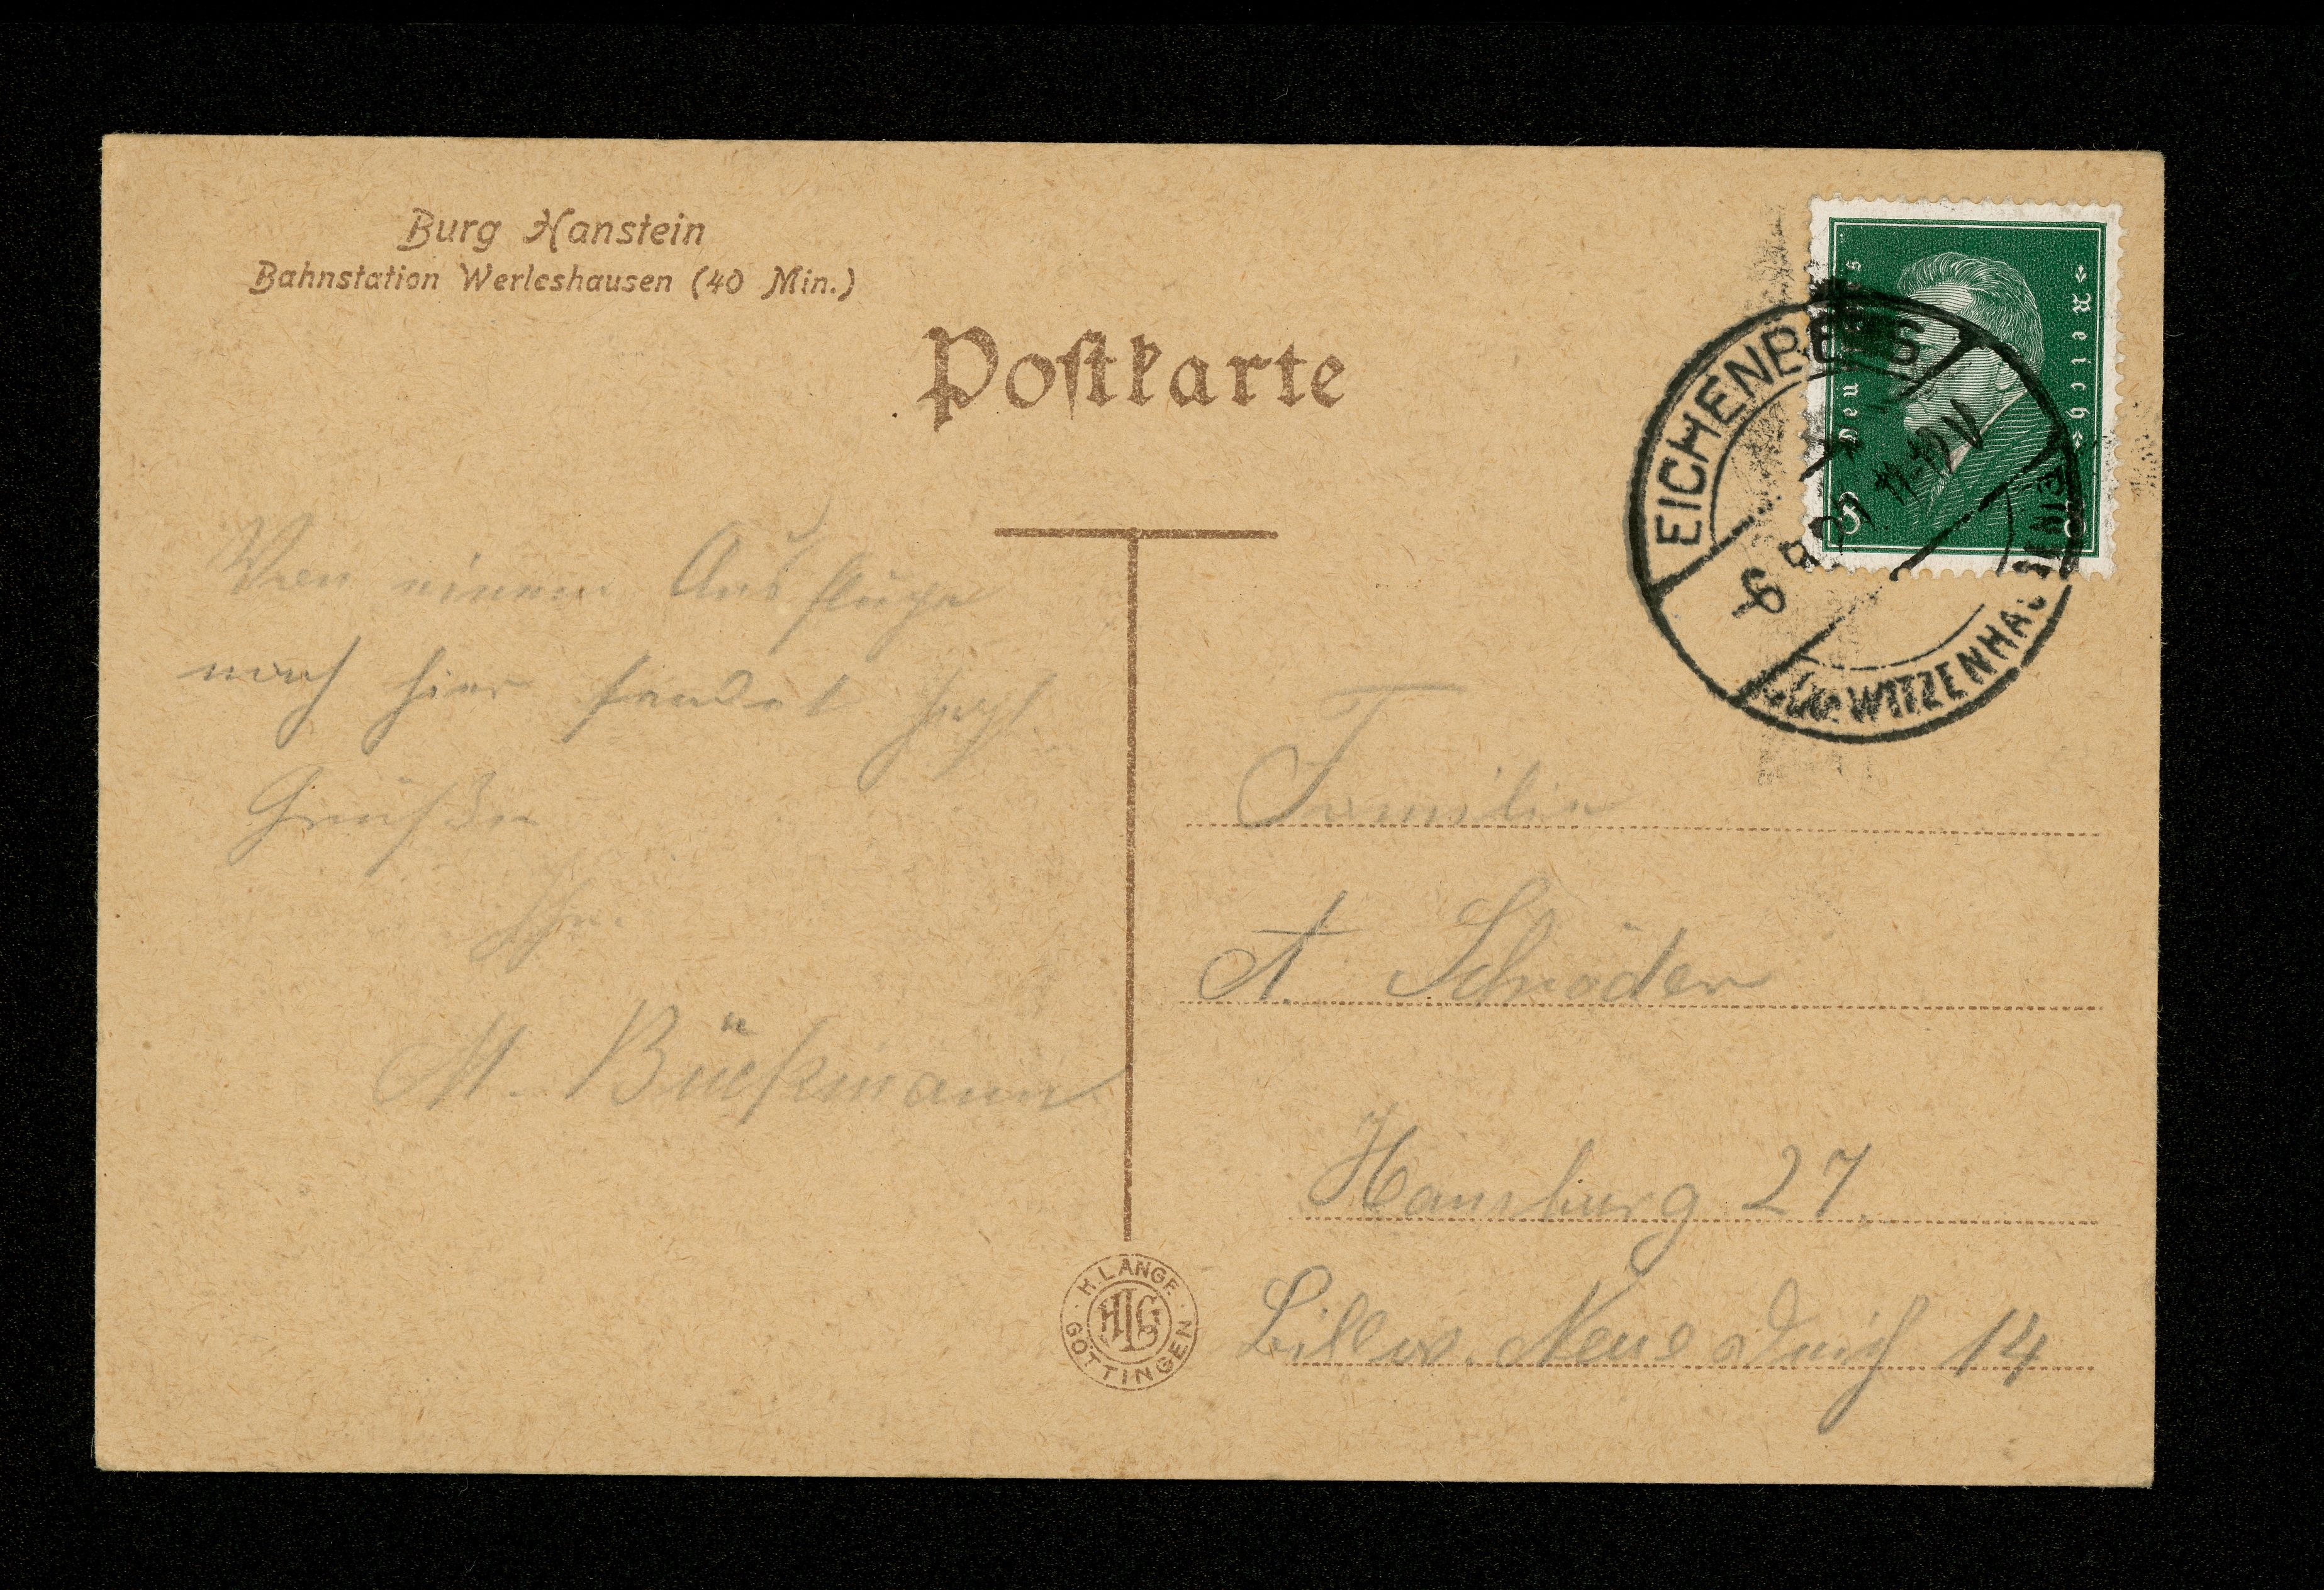 Burg Hanstein
Bahnstation Werleshausen (40 Min.)
Postkarte
Von einem Ausfluge
nach hier sendet hzgl.
Grüße
Ihr
M. Bückmann
Familie
A. Schröder
Hamburg 27.
Billw. Neue Deich 14
Reich
5
EICHENBERG
WITZENHAUSEN
11-12 V
H. LANGE
GÖTTINGEN